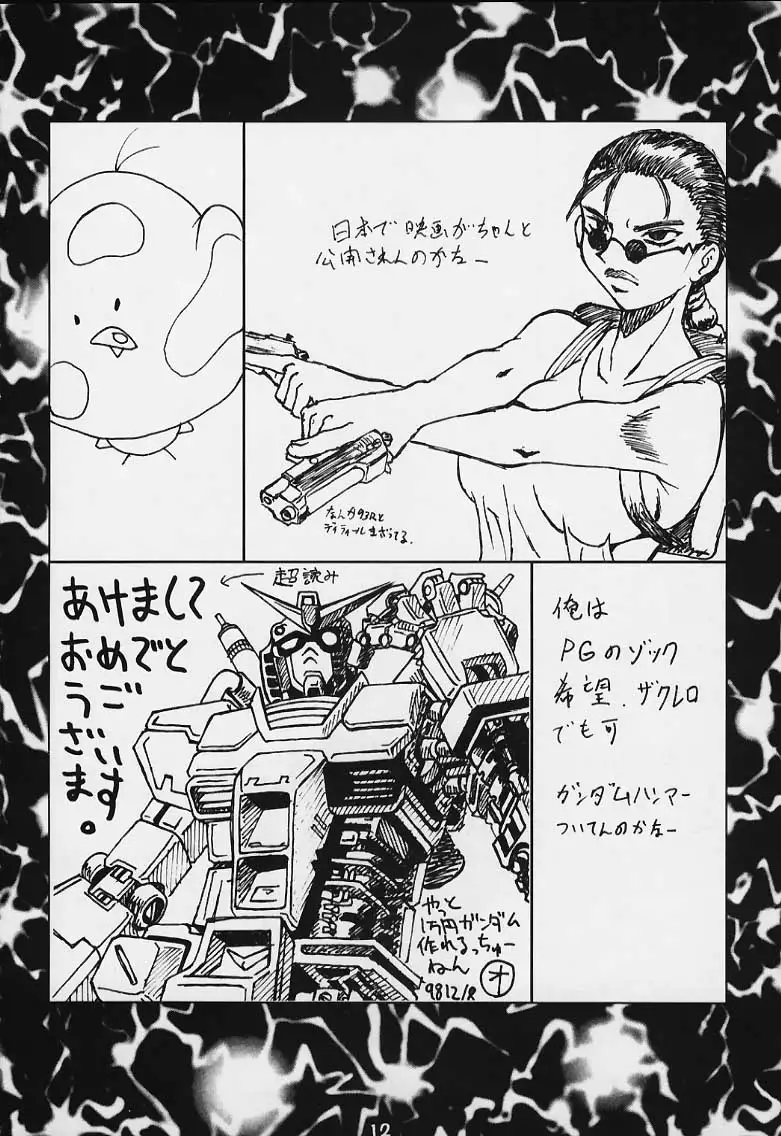 日本で映画がちゃんと
公開されんのかなー
なんか93Rと
ディティールまざってる。
超読み
あけまして
おめでと
うご
ざいます。
俺は
PGのゾック
希望.ザクレロ
でも可
ガンダムハンマー
ついてんのかなー
やっと
1万円ガンダム
作れるっちゅー
ねん
オ
12